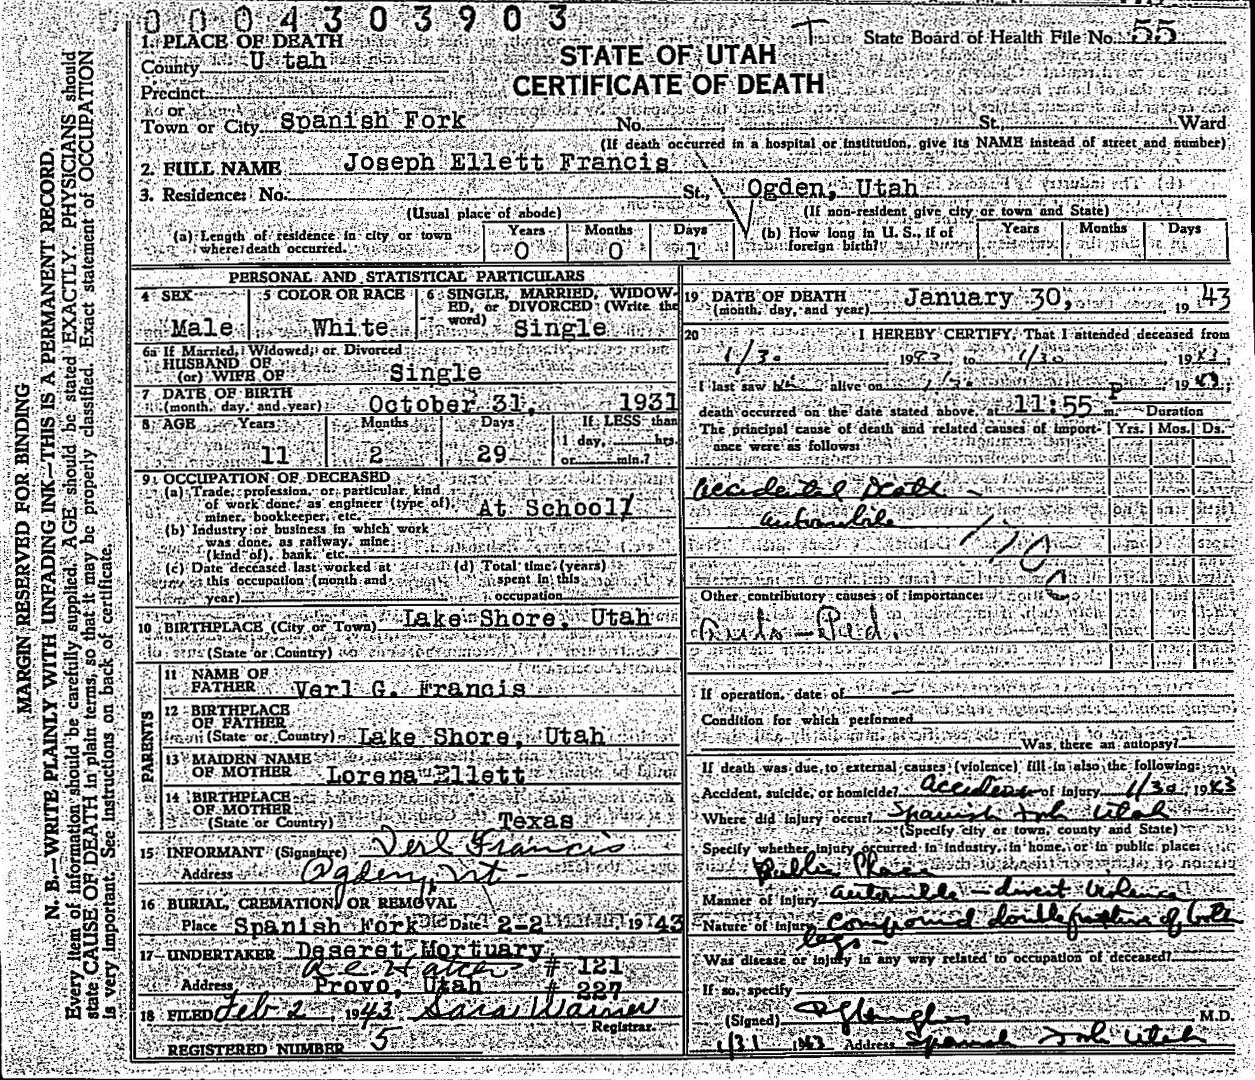 0004303903
State Board of Health File No. 55
STATE OF UTAH
CERTIFICATE OF DEATH
1. PLACE OF DEATH
County U tah
Precinct
or
Town or City Spanish Fork No. St. Ward
(If death occurred in a hospital or institution, give its NAME instead of street and number)
2. FULL NAME Joseph Ellett Francis
3. Residence: No. St., Ogden, Utah
(Usual place of abode) (If non-resident give city or town and State)
(a) Length of residence in city or town where death occurred. Years 0 Months 0 Days 1
(b) How long in U. S., if of foreign birth? Years Months Days
PERSONAL AND STATISTICAL PARTICULARS
4 SEX Male
5 COLOR OR RACE White
6 SINGLE, MARRIED, WIDOWED, or DIVORCED (Write the word) Single
6a If Married, Widowed, or Divorced
HUSBAND OF
(or) WIFE OF Single
7 DATE OF BIRTH
(month, day, and year) October 31, 1931
8 AGE Years 11 Months 2 Days 29 If LESS than 1 day, hrs. or min.?
9 OCCUPATION OF DECEASED
(a) Trade, profession, or particular kind
of work done, as engineer (type of),
miner, bookkeeper, etc. At School
(b) Industry or business in which work
was done, as railway, mine
(kind of), bank, etc.
(c) Date deceased last worked at
this occupation (month and
year)
(d) Total time (years)
spent in this
occupation
10 BIRTHPLACE (City or Town) Lake Shore, Utah
(State or Country)
PARENTS
11 NAME OF
FATHER Verl G. Francis
12 BIRTHPLACE
OF FATHER
(State or Country) Lake Shore, Utah
13 MAIDEN NAME
OF MOTHER Lorena Ellett
14 BIRTHPLACE
OF MOTHER
(State or Country) Texas
15 INFORMANT (Signature) Verl Francis
Address Ogden, Ut -
16 BURIAL, CREMATION, OR REMOVAL
Place Spanish Fork Date 2-2 1943
17 UNDERTAKER Deseret Mortuary
# 121
Address Provo, Utah # 227
18 FILED Feb 2, 1943 Sara Warner
Registrar.
REGISTERED NUMBER 5
19 DATE OF DEATH
(month, day, and year) January 30, 1943
20 I HEREBY CERTIFY, That I attended deceased from
1/30 1943 to 1/30, 1943
I last saw him alive on 1/30, 1943
death occurred on the date stated above, at 11:55 P m. Duration
The principal cause of death and related causes of importance were as follows: Yrs. Mos. Ds.
Accidental Death -
automobile
170
c
Other contributory causes of importance:
Auto-Ped.
If operation, date of —
Condition for which performed
Was there an autopsy?
If death was due to external causes (violence) fill in also the following:
Accident, suicide, or homicide? accident of injury 1/30, 1943
Where did injury occur? Spanish Fork Utah
(Specify city or town, county and State)
Specify whether injury occurred in industry, in home, or in public place:
Public Place
Manner of injury automobile - direct violence
Nature of injury Compound double fracture of both
legs -
Was disease or injury in any way related to occupation of deceased?
If so, specify
(Signed) M.D.
1/31 1943 Address Spanish Fork Utah
MARGIN RESERVED FOR BINDING
N. B.—WRITE PLAINLY WITH UNFADING INK—THIS IS A PERMANENT RECORD.
Every item of information should be carefully supplied. AGE should be stated EXACTLY. PHYSICIANS should
state CAUSE OF DEATH in plain terms, so that it may be properly classified. Exact statement of OCCUPATION
is very important. See instructions on back of certificate.